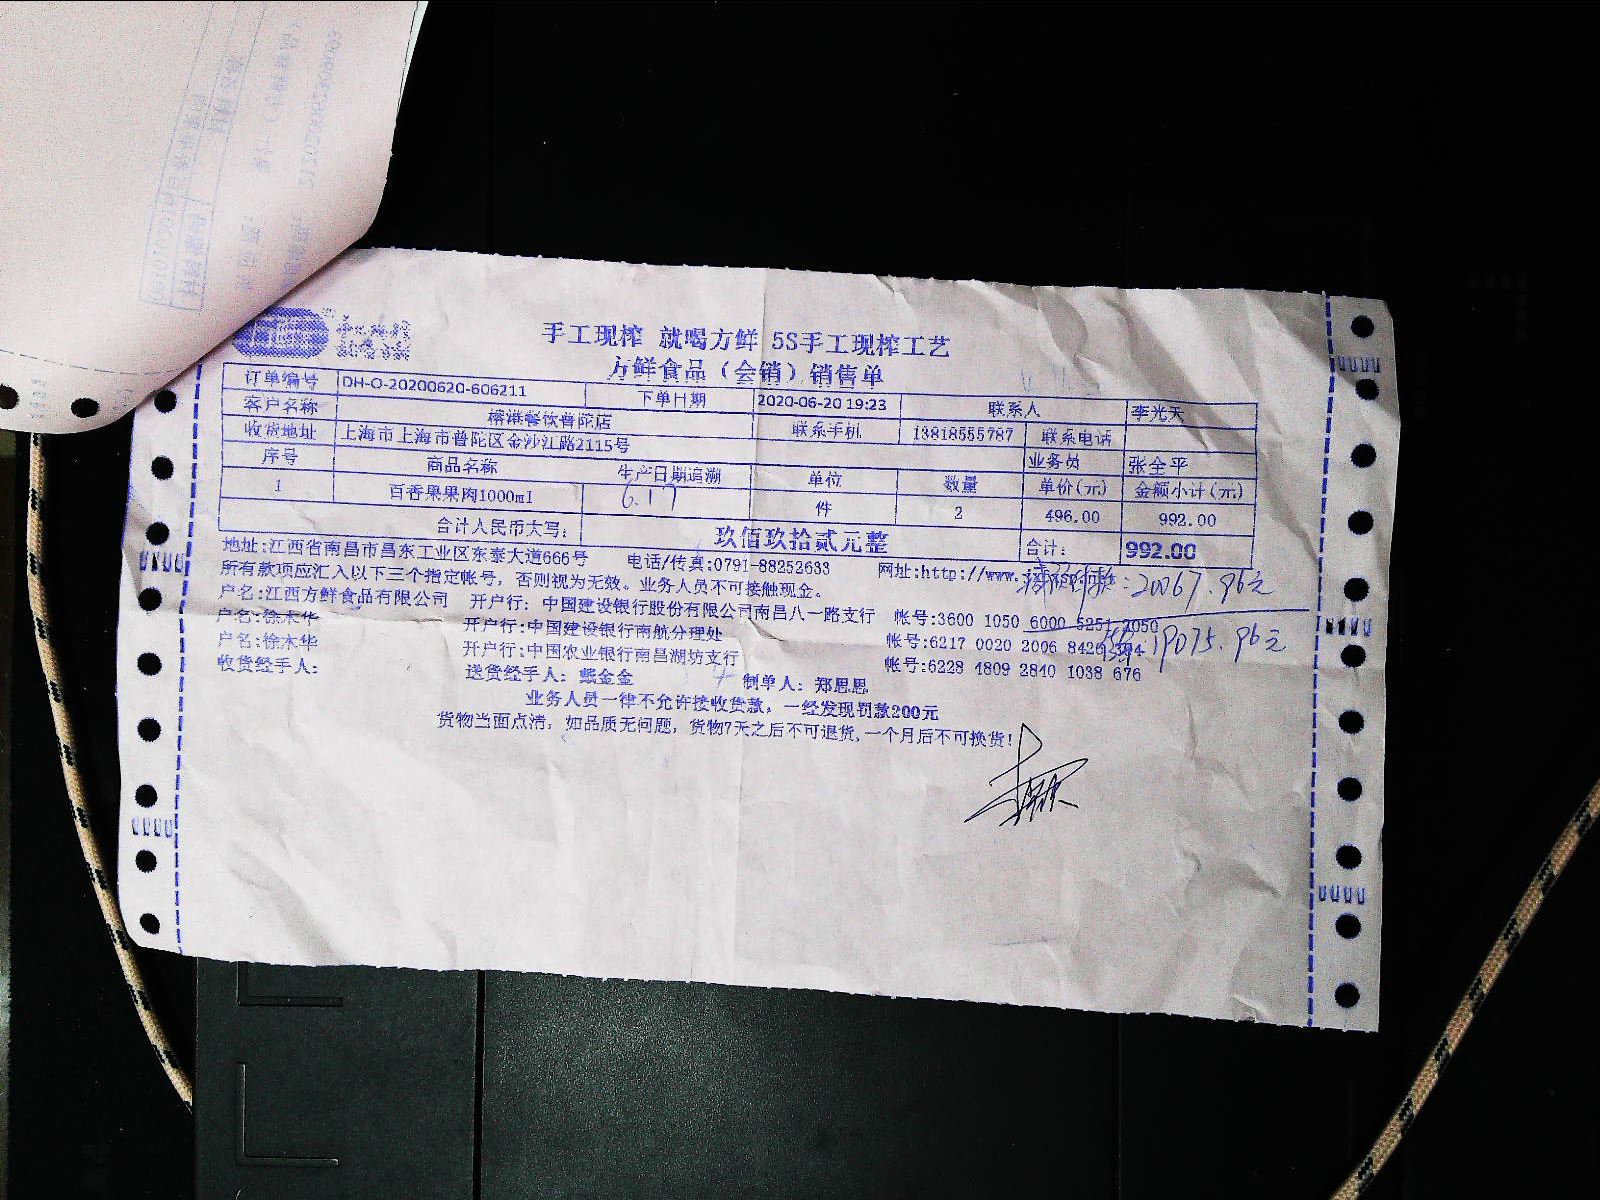 手工现榨 就喝方鲜 5S手工现榨工艺
方鲜食品（会销）销售单
订单编号 DH-O-20200620-606211 下单日期 2020-06-20 19:23 联系人 李光天
客户名称 榕港餐饮普陀店 联系手机 13818555787 联系电话
收货地址 上海市上海市普陀区金沙江路2115号 业务员 张全平
序号 商品名称 生产日期追溯 单位 数量 单价(元) 金额小计(元)
1 百香果果肉1000ml 6.17 件 2 496.00 992.00
合计人民币大写: 玖佰玖拾贰元整 合计: 992.00
地址:江西省南昌市昌东工业区东泰大道666号 电话/传真:0791-88252633 网址:http://www.
20067.96元
所有款项应汇入以下三个指定帐号，否则视为无效。业务人员不可接触现金。
户名:江西方鲜食品有限公司 开户行: 中国建设银行股份有限公司南昌八一路支行 帐号:3600 1050 6000 5251 2050
19075.96元
户名:徐木华 开户行:中国建设银行南航分理处 帐号:6217 0020 2006 8426
户名:徐木华 开户行:中国农业银行南昌湖坊支行 帐号:6228 4809 2840 1038 676
收货经手人: 送货经手人: 戴金金 制单人: 郑思思
业务人员一律不允许接收货款，一经发现罚款200元
货物当面点清，如品质无问题，货物7天之后不可退货,一个月后不可换货!